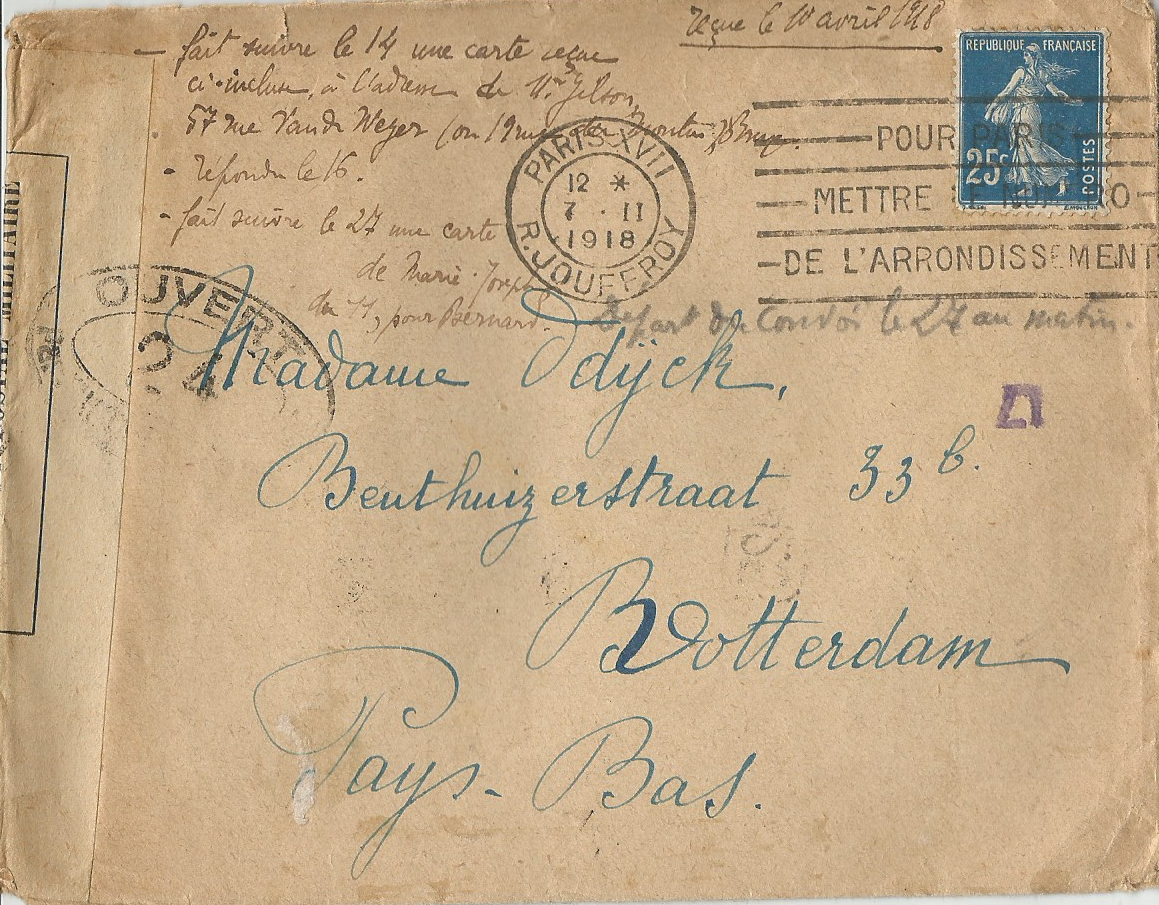 reçue le 10 avril 1918
— fait suivre le 14 une carte reçue
ci-incluse, à l'adresse de Mr Gilson,
57 rue Vande Weyer (ou 19 rue
- répondu le 16.
- fait suivre le 27 une carte
de Marie-Joseph
du 11, pour Bernard.
REPUBLIQUE FRANÇAISE
25c
POSTES
POUR PARIS
METTRE LE NUMERO
DE L'ARRONDISSEMENT
PARIS XVII
12 *
7 · II
1918
R. JOUFFROY
Départ du Convoi le 27 au matin.
MILITAIRE
OUVERT
24
Madame Odijck,
Benthuizerstraat 33 b.
Rotterdam
Pays-Bas.